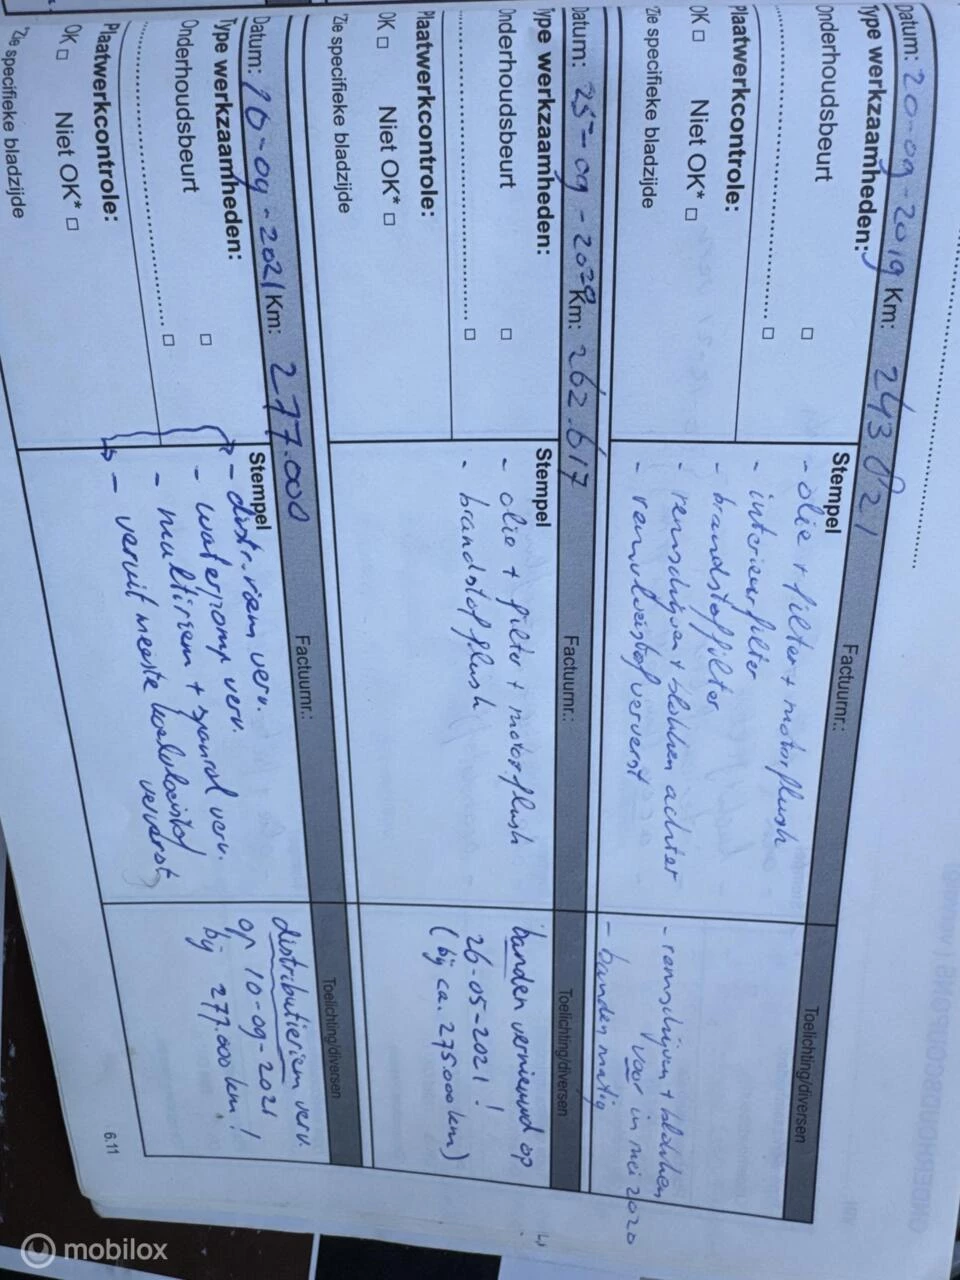 Datum: 20-09-2019 Km: 243.021
Type werkzaamheden:
Onderhoudsbeurt □
.................... □
Plaatwerkcontrole:
OK □ Niet OK* □
Zie specifieke bladzijde
Stempel
Factuurnr.:
- olie + filter + motorflush
- interieurfilter
- brandstoffilter
- remschijven + blokken achter
- remvloeistof ververst
Toelichting/diversen
- remschijven + blokken
voor in mei 2020
- banden matig
Datum: 25-09-2020 Km: 262.617
Type werkzaamheden:
Onderhoudsbeurt □
.................... □
Plaatwerkcontrole:
OK □ Niet OK* □
Zie specifieke bladzijde
Stempel
Factuurnr.:
- olie + filter + motorflush
- brandstofflush
Toelichting/diversen
banden vernieuwd op
26-05-2021!
(bij ca. 275.000 km)
Datum: 10-09-2021 Km: 277.000
Type werkzaamheden:
Onderhoudsbeurt □
.................... □
Plaatwerkcontrole:
OK □ Niet OK* □
Zie specifieke bladzijde
Stempel
Factuurnr.:
- distr. riem verv.
- waterpomp verv.
- multiriem + spanrol verv.
- veruit meeste koelvloeistof
ververst
Toelichting/diversen
distributieriem verv.
op 10-09-2021
bij 277.000 km!
6.11
mobilox